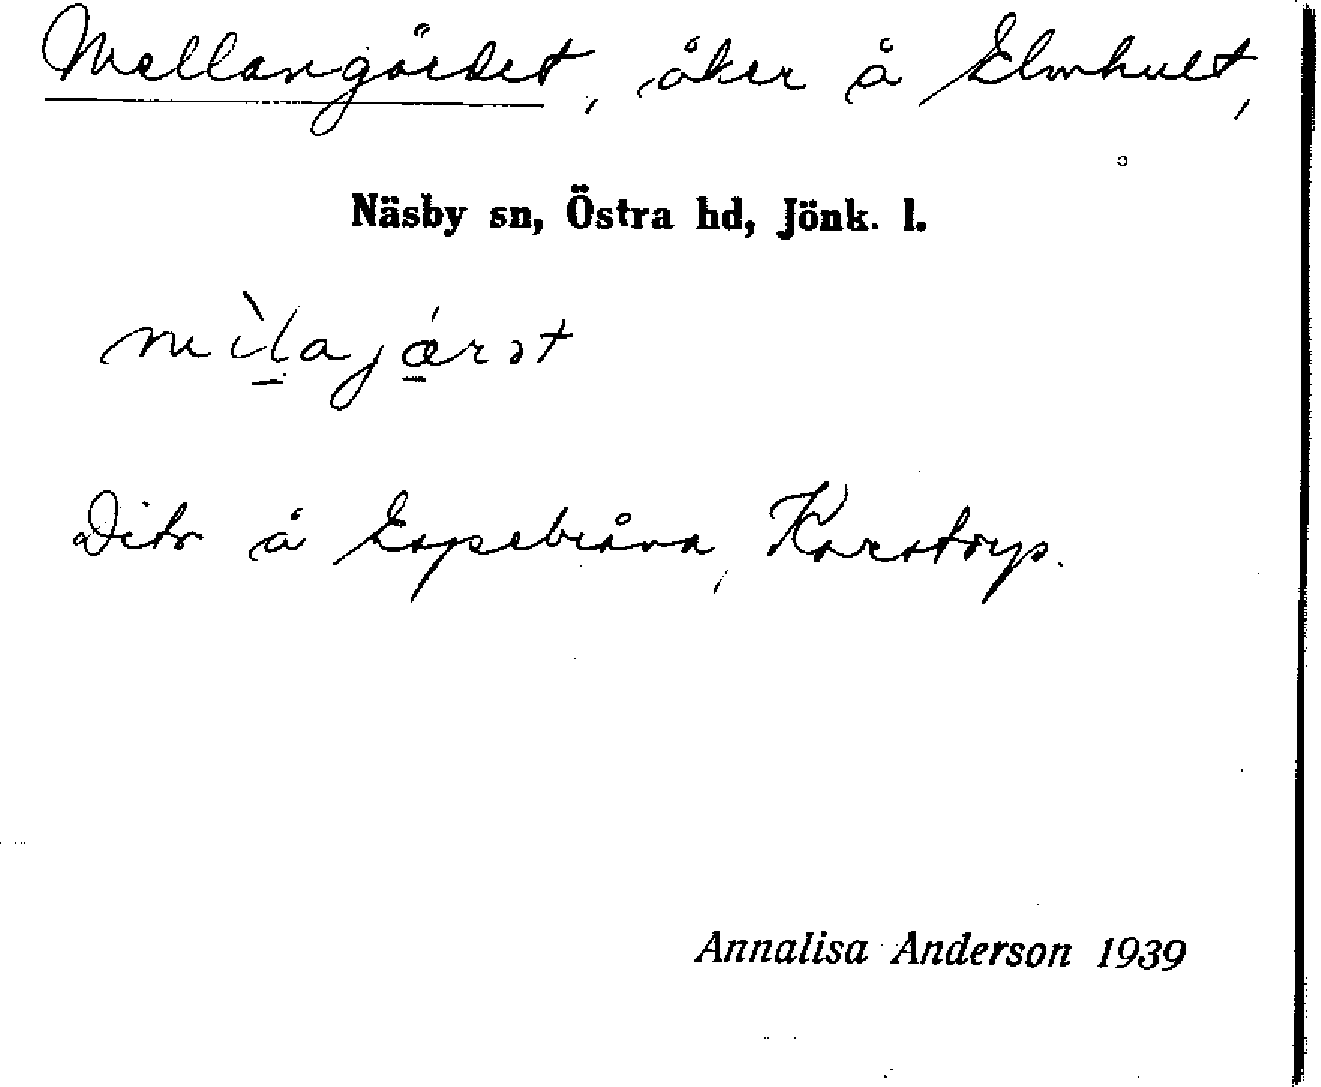 Mellangärdet, åker å Elmhult,
Näsby sn, Östra hd, Jönk. l.
mìlajǽrət
Dito å Espebråna, Karstorp.
Annalisa Anderson 1939